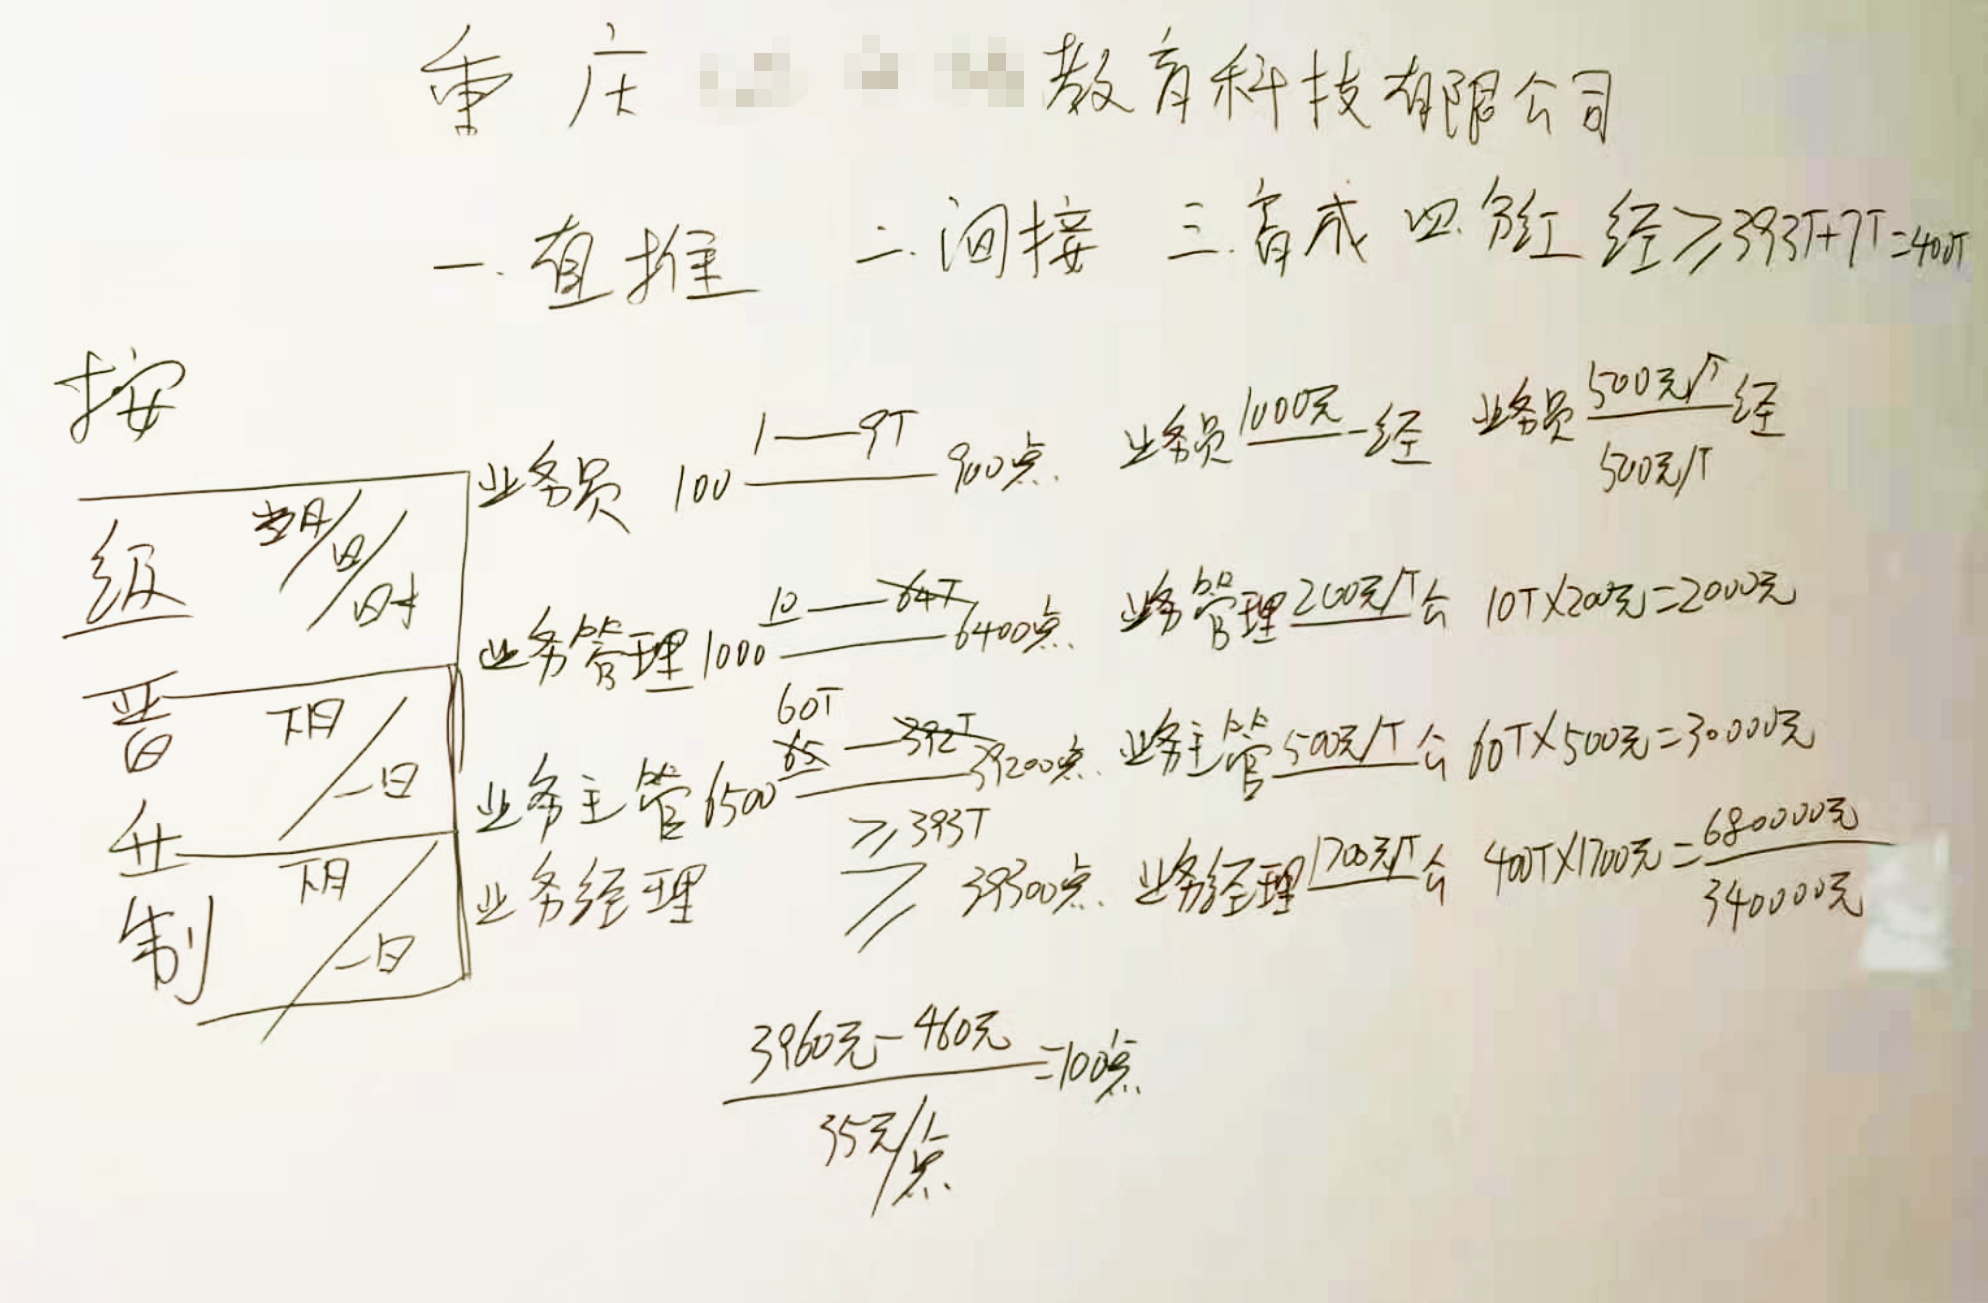 重庆 教育科技有限公司
一.直推 二.间接 三.育成 四.分红 经≥393T+7T=400T
按
级 当月/日/时
晋 下月/一日
升
制 下月/一日
业务员 100 1——9T 900点. 业务员 1000元 经 业务员 500元/T 500元/T 经
业务管理 1000 10——64T 6400点. 业务管理 200元/T 公 10T×200元=2000元
业务主管 6500 60T 65——392T 39200点. 业务主管 500元/T 公 60T×500元=30000元
业务经理 ≥393T ≥ 39300点. 业务经理 1700元/T 公 400T×1700元=680000元
340000元
3960元-460元
=100点.
35元/点.